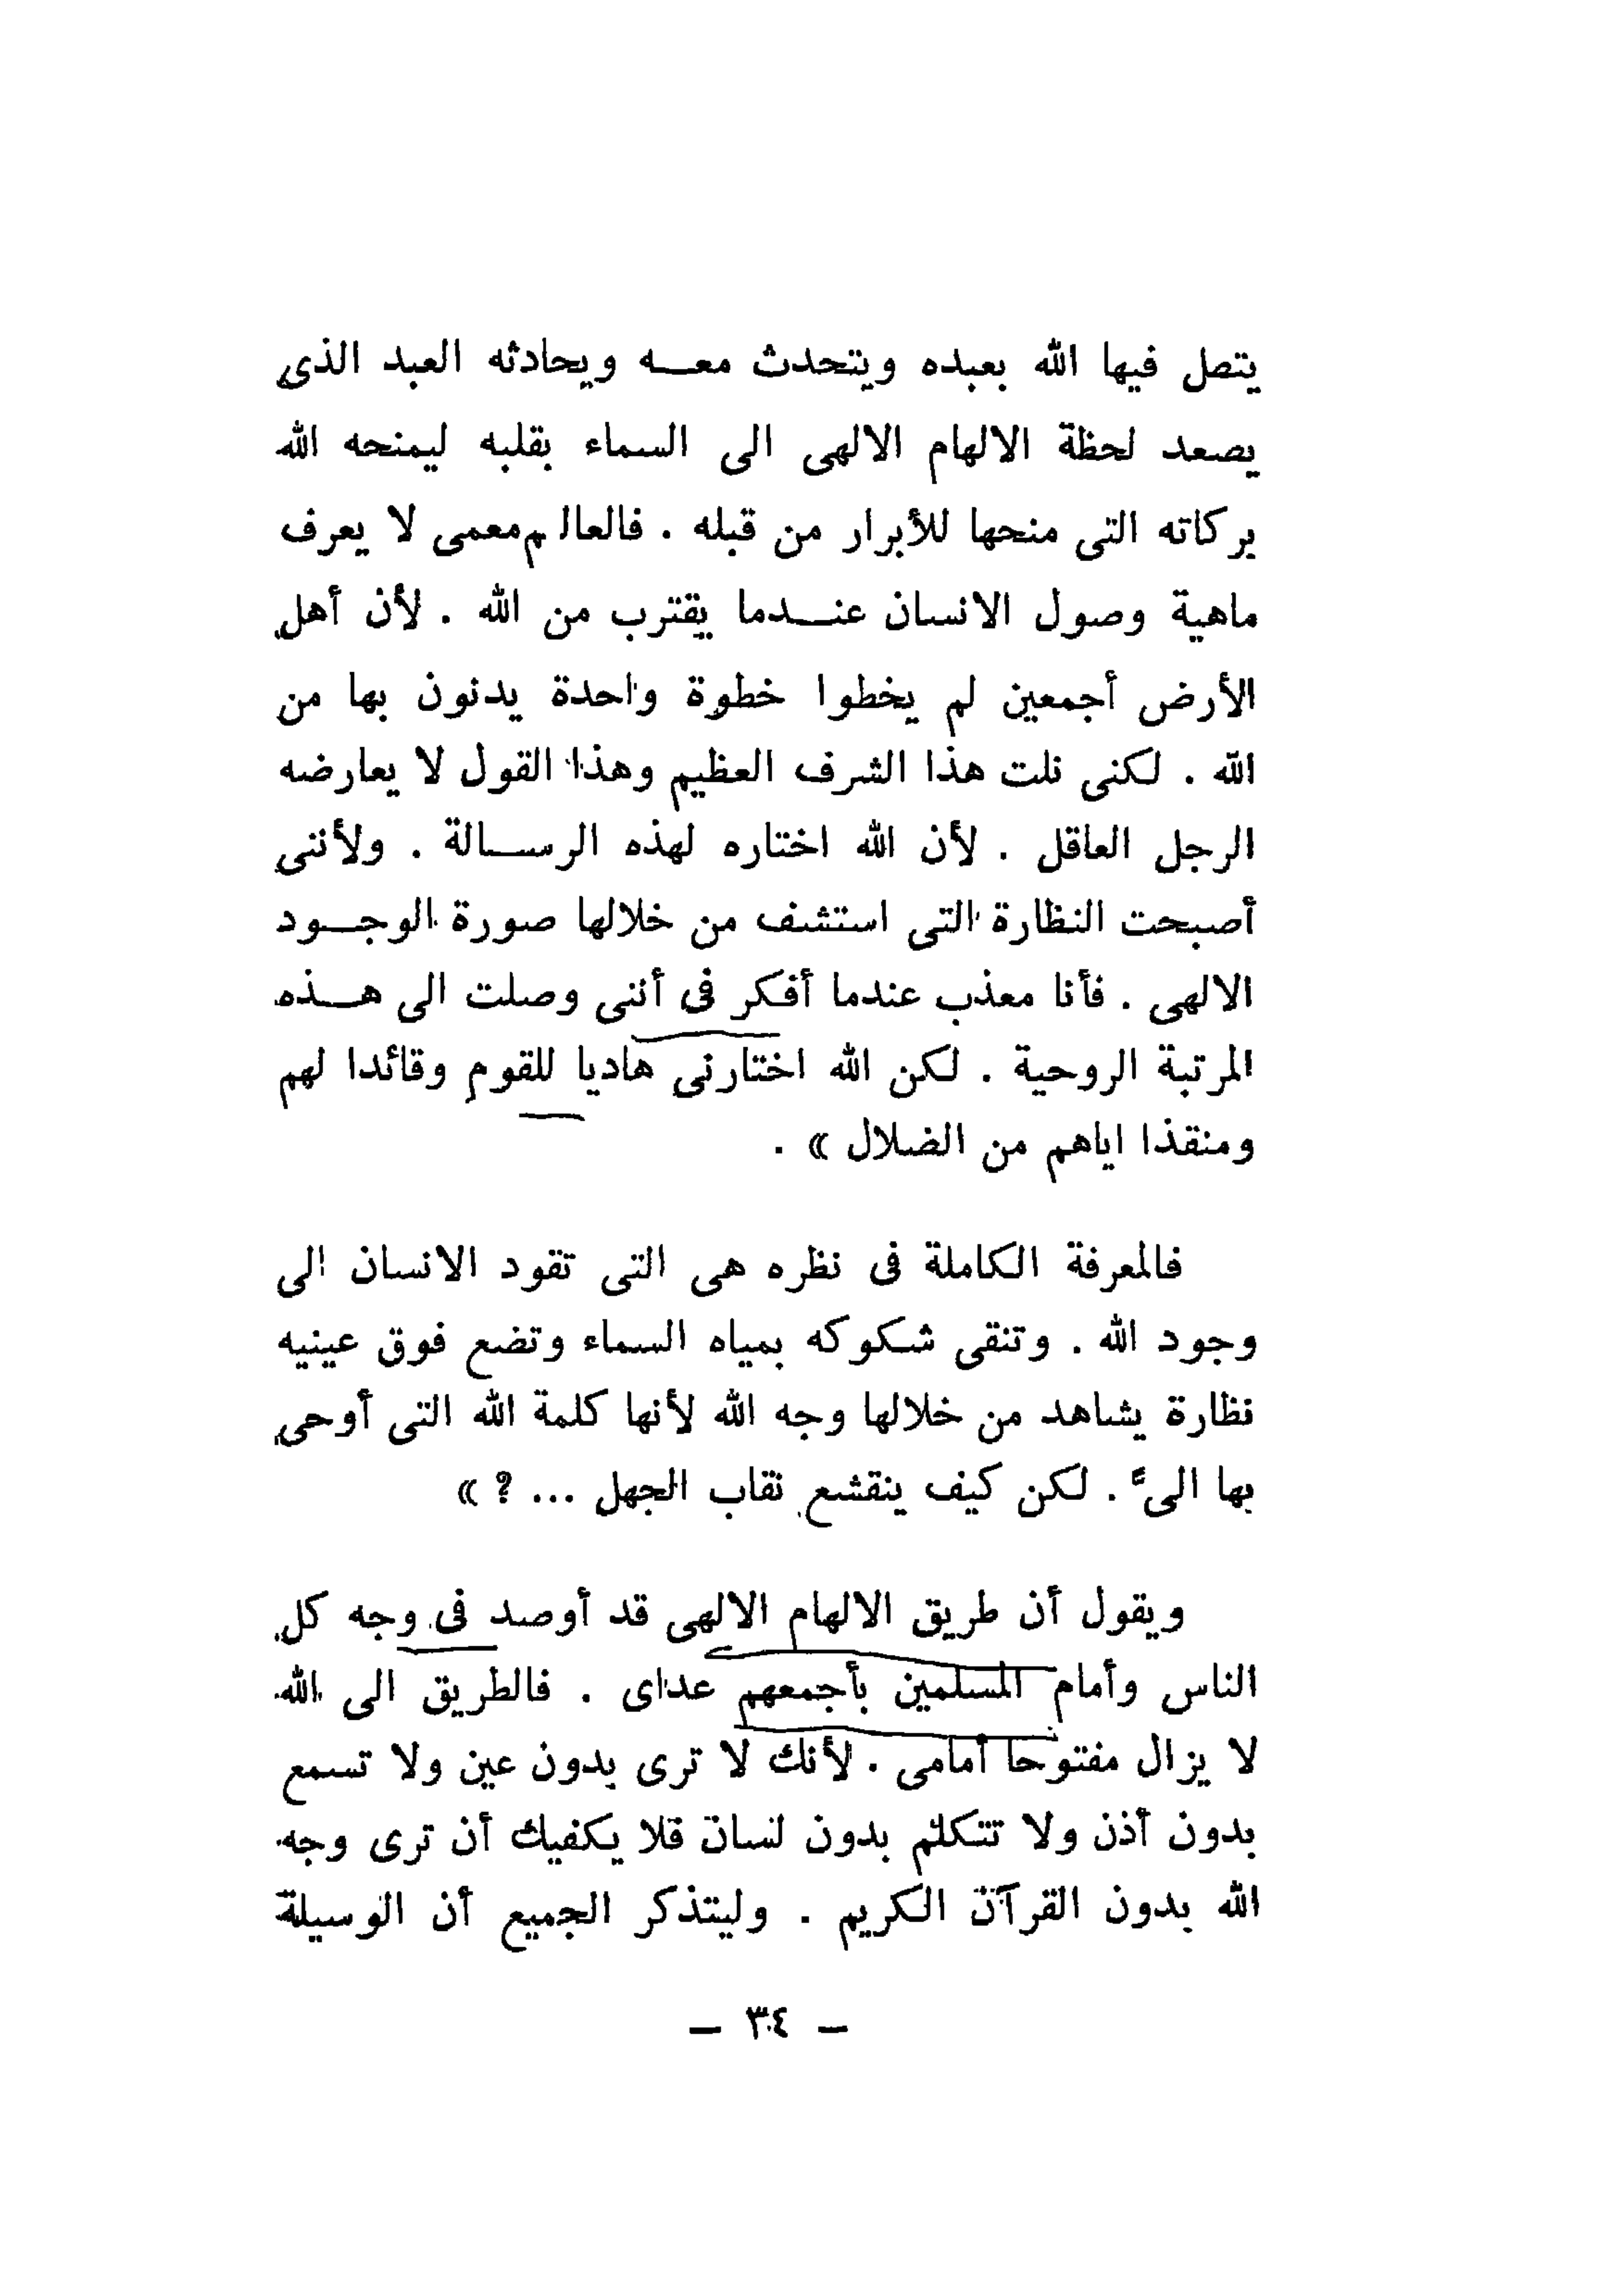 يتصل فيها الله بعبده ويتحدث معه ويحادثه العبد الذى
يصعد لحظة الالهام الالهى الى السماء بقلبه ليمنحه الله
بركاته التى منحها للأبرار من قبله . فالعالم معمى لا يعرف
ماهية وصول الانسان عندما يقترب من الله . لأن أهل
الأرض أجمعين لم يخطوا خطوة واحدة يدنون بها من
الله . لكنى نلت هذا الشرف العظيم وهذا القول لا يعارضه
الرجل العاقل . لأن الله اختاره لهذه الرسالة . ولأننى
أصبحت النظارة التى استشف من خلالها صورة الوجود
الالهى . فأنا معذب عندما أفكر فى أننى وصلت الى هذه
المرتبة الروحية . لكن الله اختارنى هاديا للقوم وقائدا لهم
ومنقذا اياهم من الضلال » .
فالمعرفة الكاملة فى نظره هى التى تقود الانسان الى
وجود الله . وتنقى شكوكه بمياه السماء وتضع فوق عينيه
نظارة يشاهد من خلالها وجه الله لأنها كلمة الله التى أوحى
بها الىّ . لكن كيف ينقشع نقاب الجهل ... ? »
ويقول أن طريق الالهام الالهى قد أوصد فى وجه كل
الناس وأمام المسلمين بأجمعهم عداى . فالطريق الى الله
لا يزال مفتوحا أمامى . لأنك لا ترى بدون عين ولا تسمع
بدون أذن ولا تتكلم بدون لسان فلا يكفيك أن ترى وجه
الله بدون القرآن الكريم . وليتذكر الجميع أن الوسيلة
— ٣٤ —